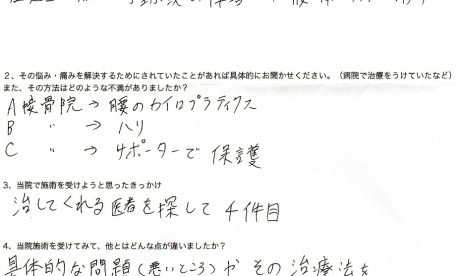 2、その悩み・痛みを解決するためにされていたことがあれば具体的にお聞かせください。(病院で治療をうけていたなど)
また、その方法はどのような不満がありましたか?
A 接骨院 → 腰のカイロプラティクス
B 〃 → ハリ
C 〃 → サポーターで 保護
3、当院で施術を受けようと思ったきっかけ
治してくれる医者を探して 4件目
4、当院施術を受けてみて、他とはどんな点が違いましたか?
具体的な問題(悪いところ)や その治療法を